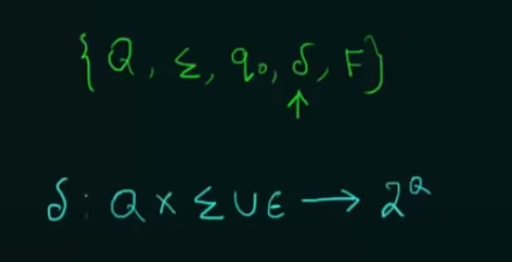 {Q, Σ, q₀, δ, F}
↑
δ: Q × Σ ∪ ε → 2^Q